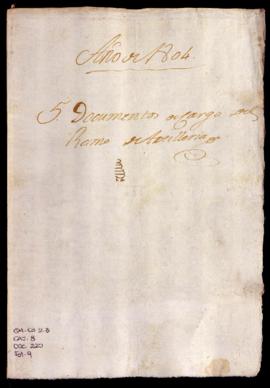 Año de 1804.
5. Documentos de cargo del
Ramo de Artilleria
CAJ. 8
DOC. 220
Fol. 9